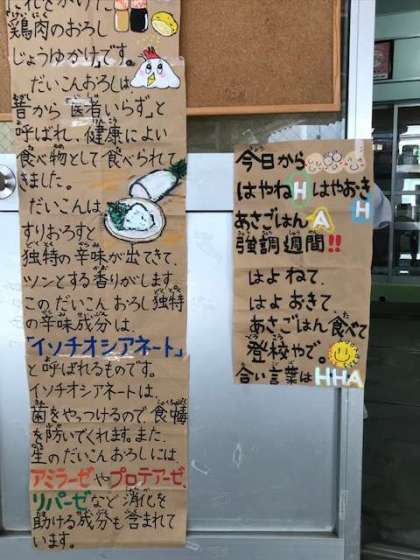 鶏肉のおろし
じょうゆかけ」です。
だいこんおろしは
昔から「医者いらず」と
呼ばれ、健康によい
食べ物として食べられて
きました。
だいこんは
すりおろすと
独特の辛味が出てきて、
ツンとする香りがします。
このだいこんおろし独特
の辛味成分は、
「イソチオシアネート」
と呼ばれるものです。
イソチオシアネートは、
菌をやっつけるので
を防いでくれます。また、
生のだいこんおろしには
アミラーゼやプロテアーゼ、
リパーゼなど消化を
助ける成分も含まれて
います。
今日から
はやねHはやおきH
あさごはんA
強調週間!!
はよねて、
はよおきて
あさごはん食べて
登校やで。
合い言葉はHHA